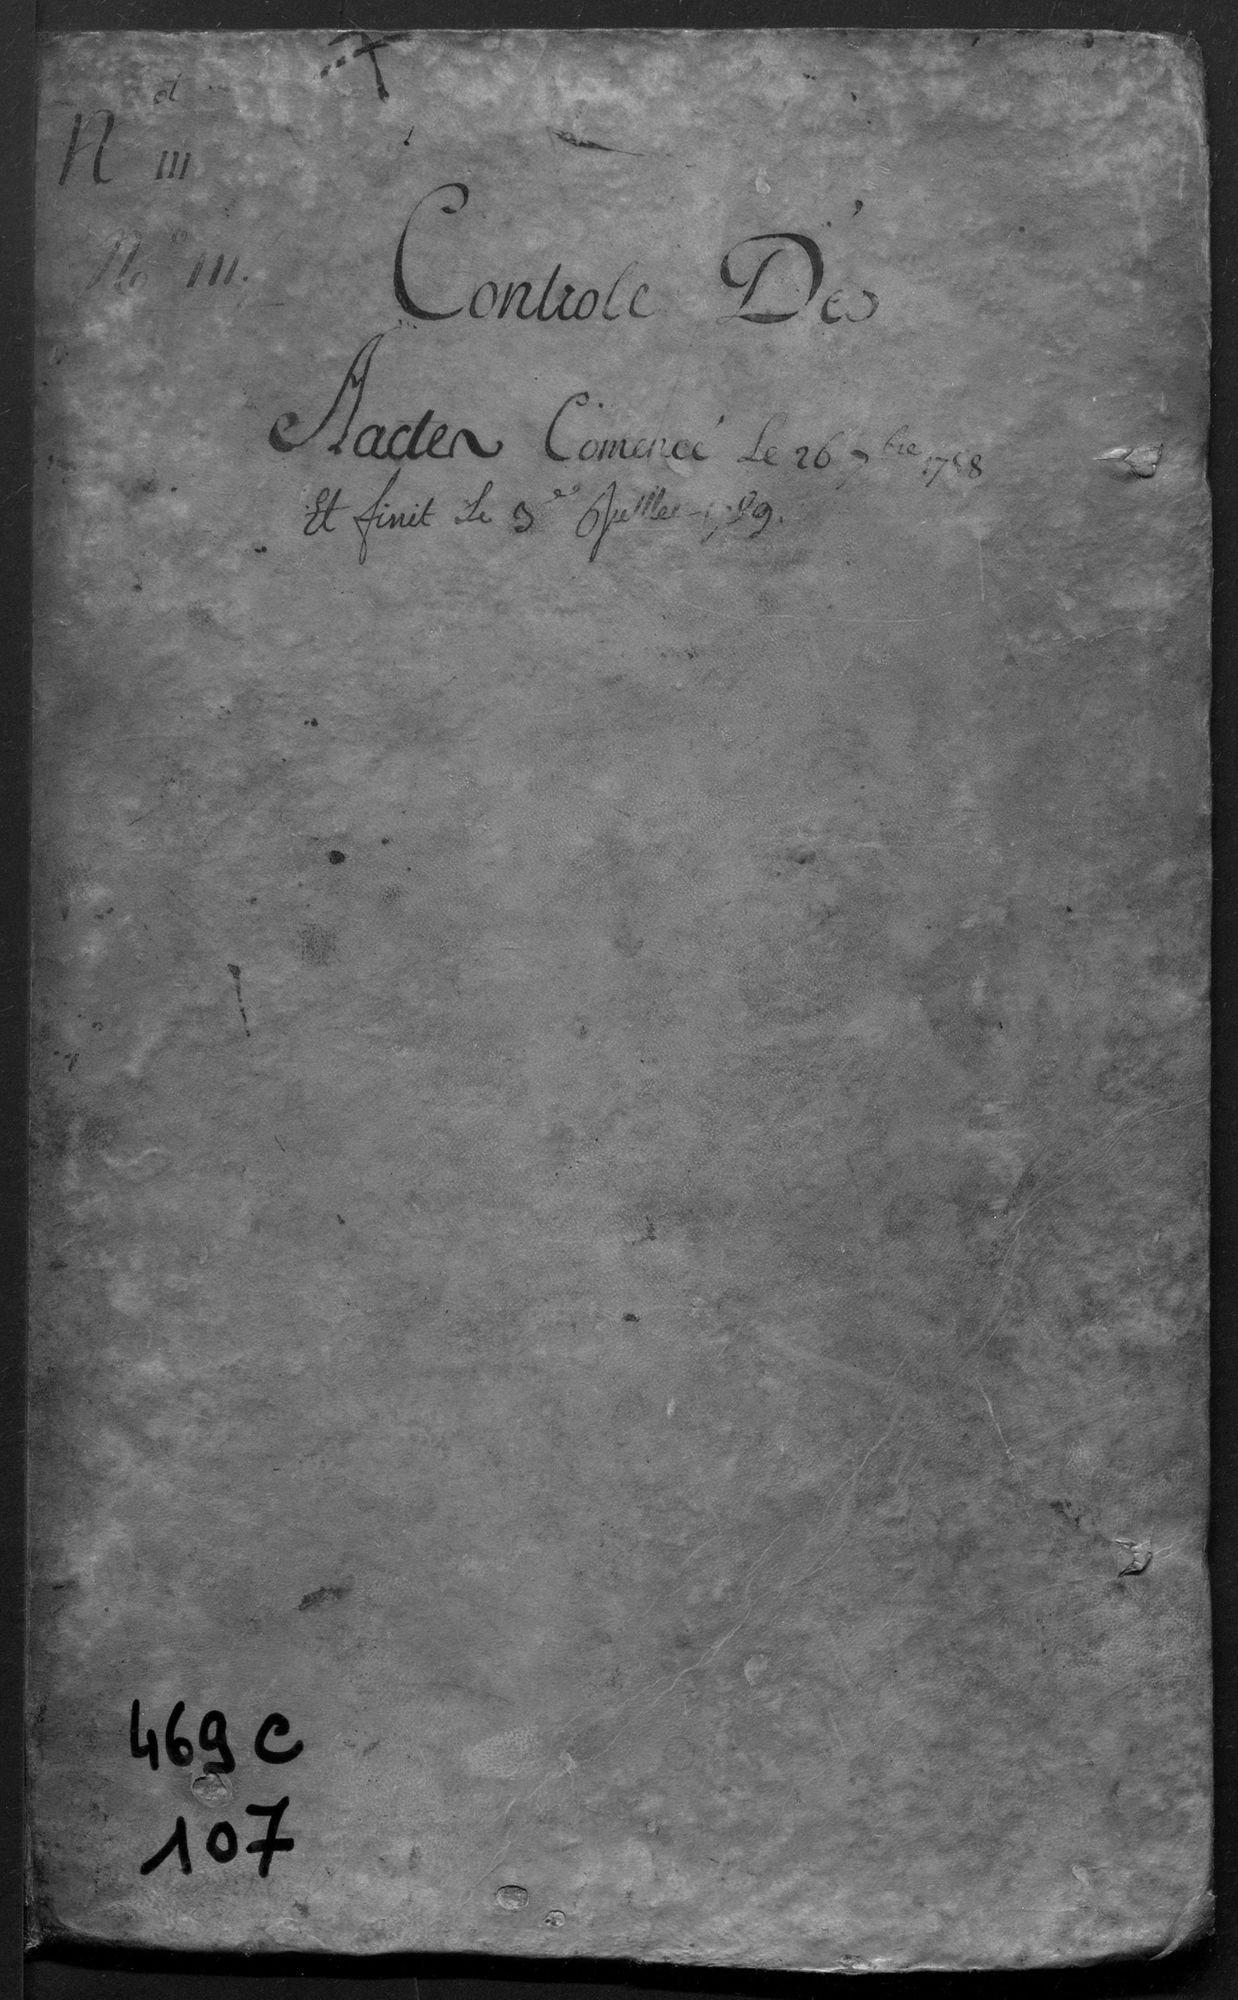 N° 111
N° 111.
Controle Des
Aactes Comencé Le 26 7bre 1788
Et finit Le 3 Juillet 1789.
469 C
107